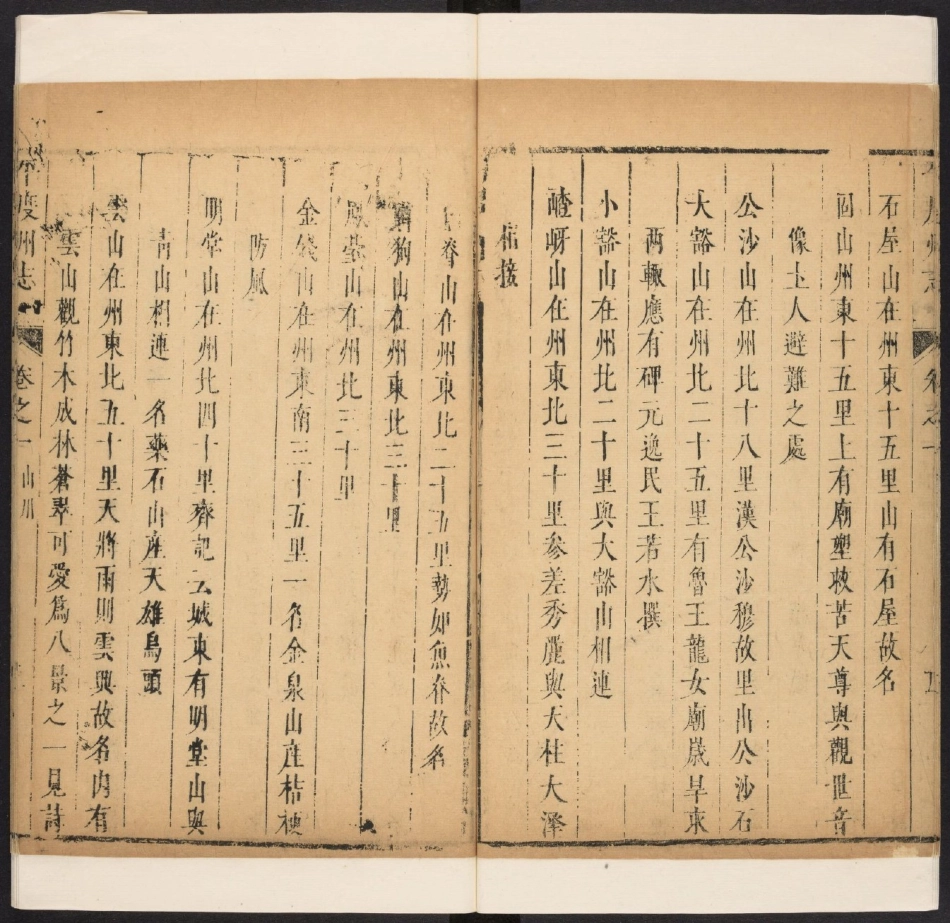 石屋山在州東十五里山有石屋故名
固山州東十五里上有廟塑救苦天尊與觀世音
像土人避難之處
公沙山在州北十八里漢公沙穆故里出公沙石
大豁山在州北二十五里有魯王龍女廟歲旱東
西輒應有碑元逸民王若水撰
小豁山在州北二十里與大豁山相連
嵖岈山在州東北三十里參差秀麗與天柱大澤
相接
脊山在州東北二十五里勢如魚脊故名
狗山在州東北三十里
臺山在州北三十里
金錢山在州東南三十五里一名金泉山產桔梗
防風
明堂山在州北四十里齊記云城東有明堂山與
青山相連一名藥石山產天雄烏頭
雲山在州東北五十里天將雨則雲興故名內有
雲山觀竹木成林蒼翠可愛為八景之一見詩
平度州志
卷之一 山川